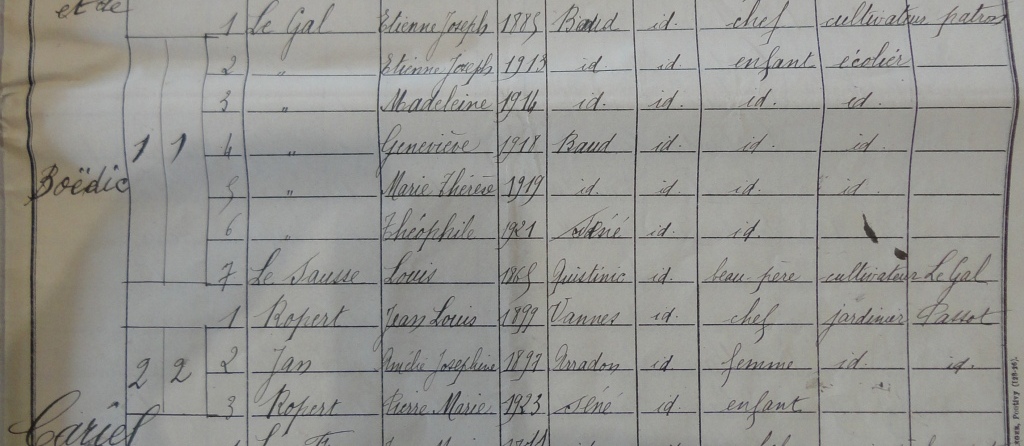 et de
1 Le Gal Etienne Joseph 1885 Baud id. chef cultivateur patron
2 " Etienne Joseph 1913 id. id. enfant écolier
3 " Madeleine 1914 id. id. id. id.
1 1 4 " Geneviève 1918 Baud id. id. id.
Boëdic 5 " Marie Thérèse 1919 id. id. id. id.
6 " Théophile 1921 Séné id. id.
7 Le Fausse Louis 1865 Quistinic id. beau-père cultivateur Le Gal
1 Ropert Jean Louis 1899 Vannes id. chef jardinier
2 2 2 Jan Amélie Josephine 1897 Arradon id. femme id. id.
3 Ropert Pierre Marie 1923 Séné id. enfant